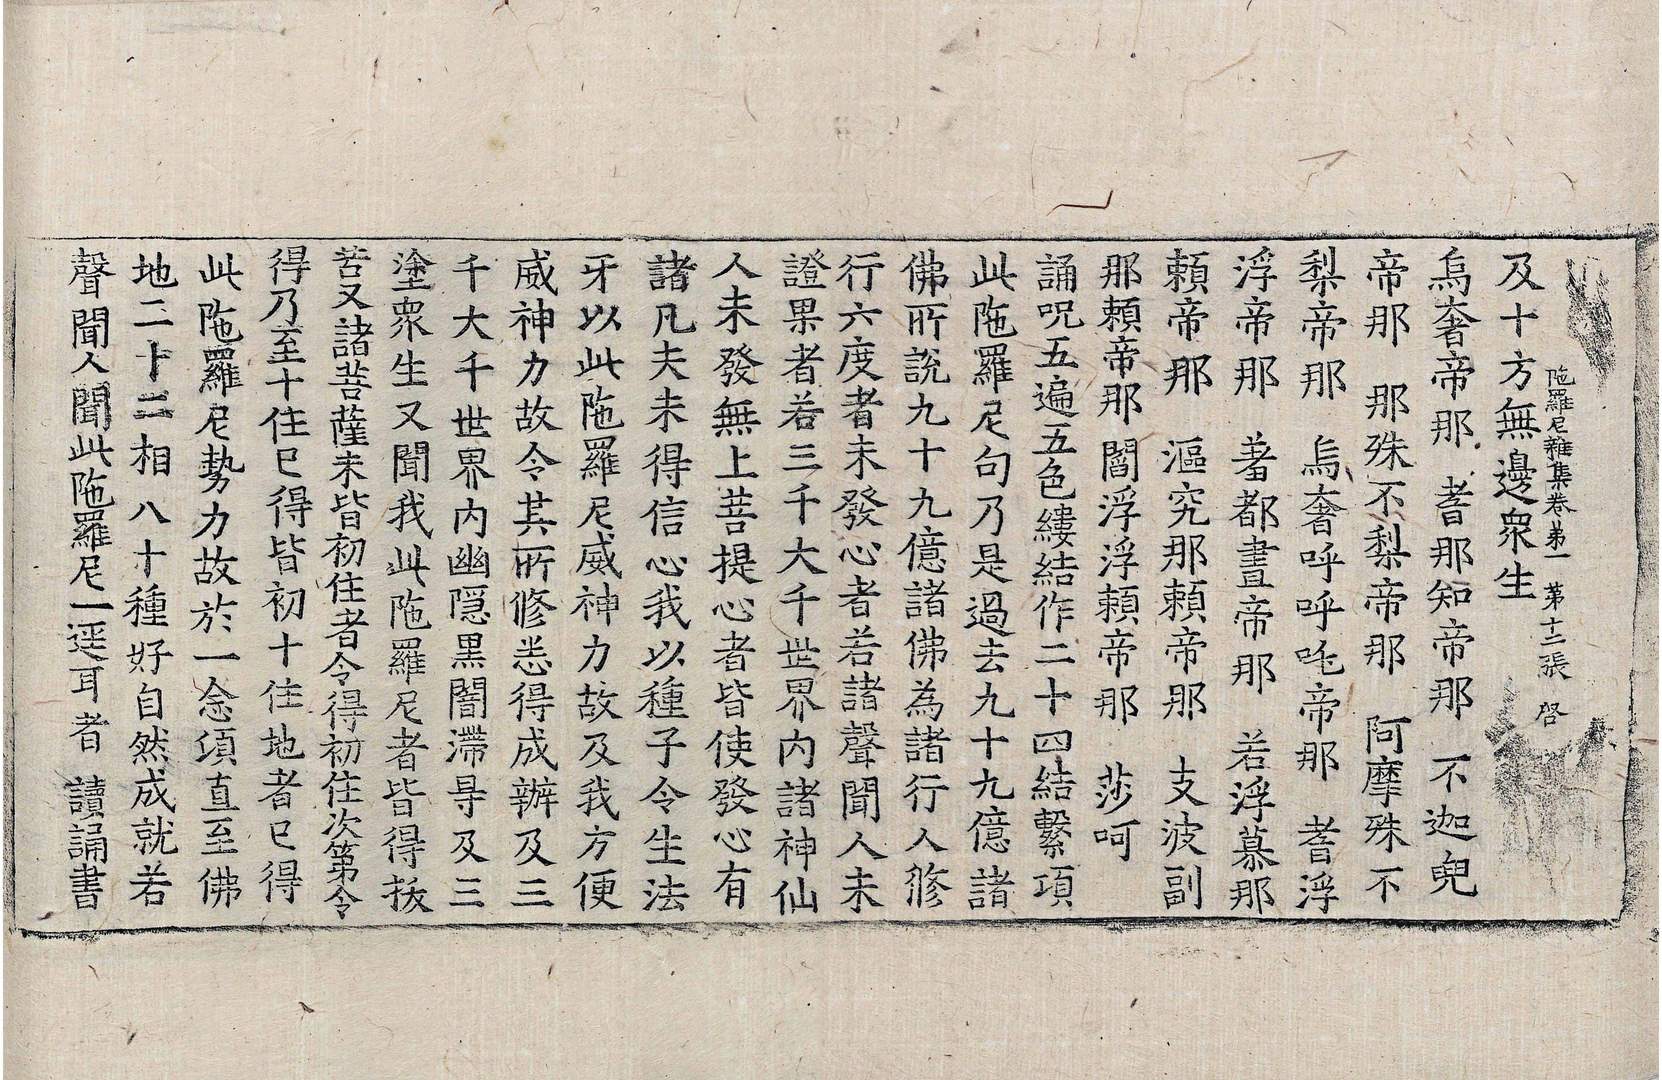 陁羅尼雜集卷第一　第十二張　啓
及十方無邊衆生
烏奢帝那　耆那知帝那　不迦兜
帝那　那殊不梨帝那　阿摩殊不
梨帝那　烏奢呼呼吒帝那　耆浮
浮帝那　蓍都晝帝那　若浮慕那
賴帝那　漚究那賴帝那　支波副
那賴帝那　閻浮浮賴帝那　莎呵
誦呪五遍五色縷結作二十四結繫項
此陁羅尼句乃是過去九十九億諸
佛所說九十九億諸佛為諸行人修
行六度者未發心者若諸聲聞人未
證果者若三千大千世界內諸神仙
人未發無上菩提心者皆使發心有
諸凡夫未得信心我以種子令生法
牙以此陁羅尼威神力故及我方便
威神力故令其所修悉得成辦及三
千大千世界內幽隱黑闇滯㝵及三
塗衆生又聞我此陁羅尼者皆得拔
苦又諸菩薩未皆初住者令得初住次第令
得乃至十住已得皆初十住地者已得
此陁羅尼勢力故於一念頃直至佛
地三十二相八十種好自然成就若
聲聞人聞此陁羅尼一逕耳者　讀誦書